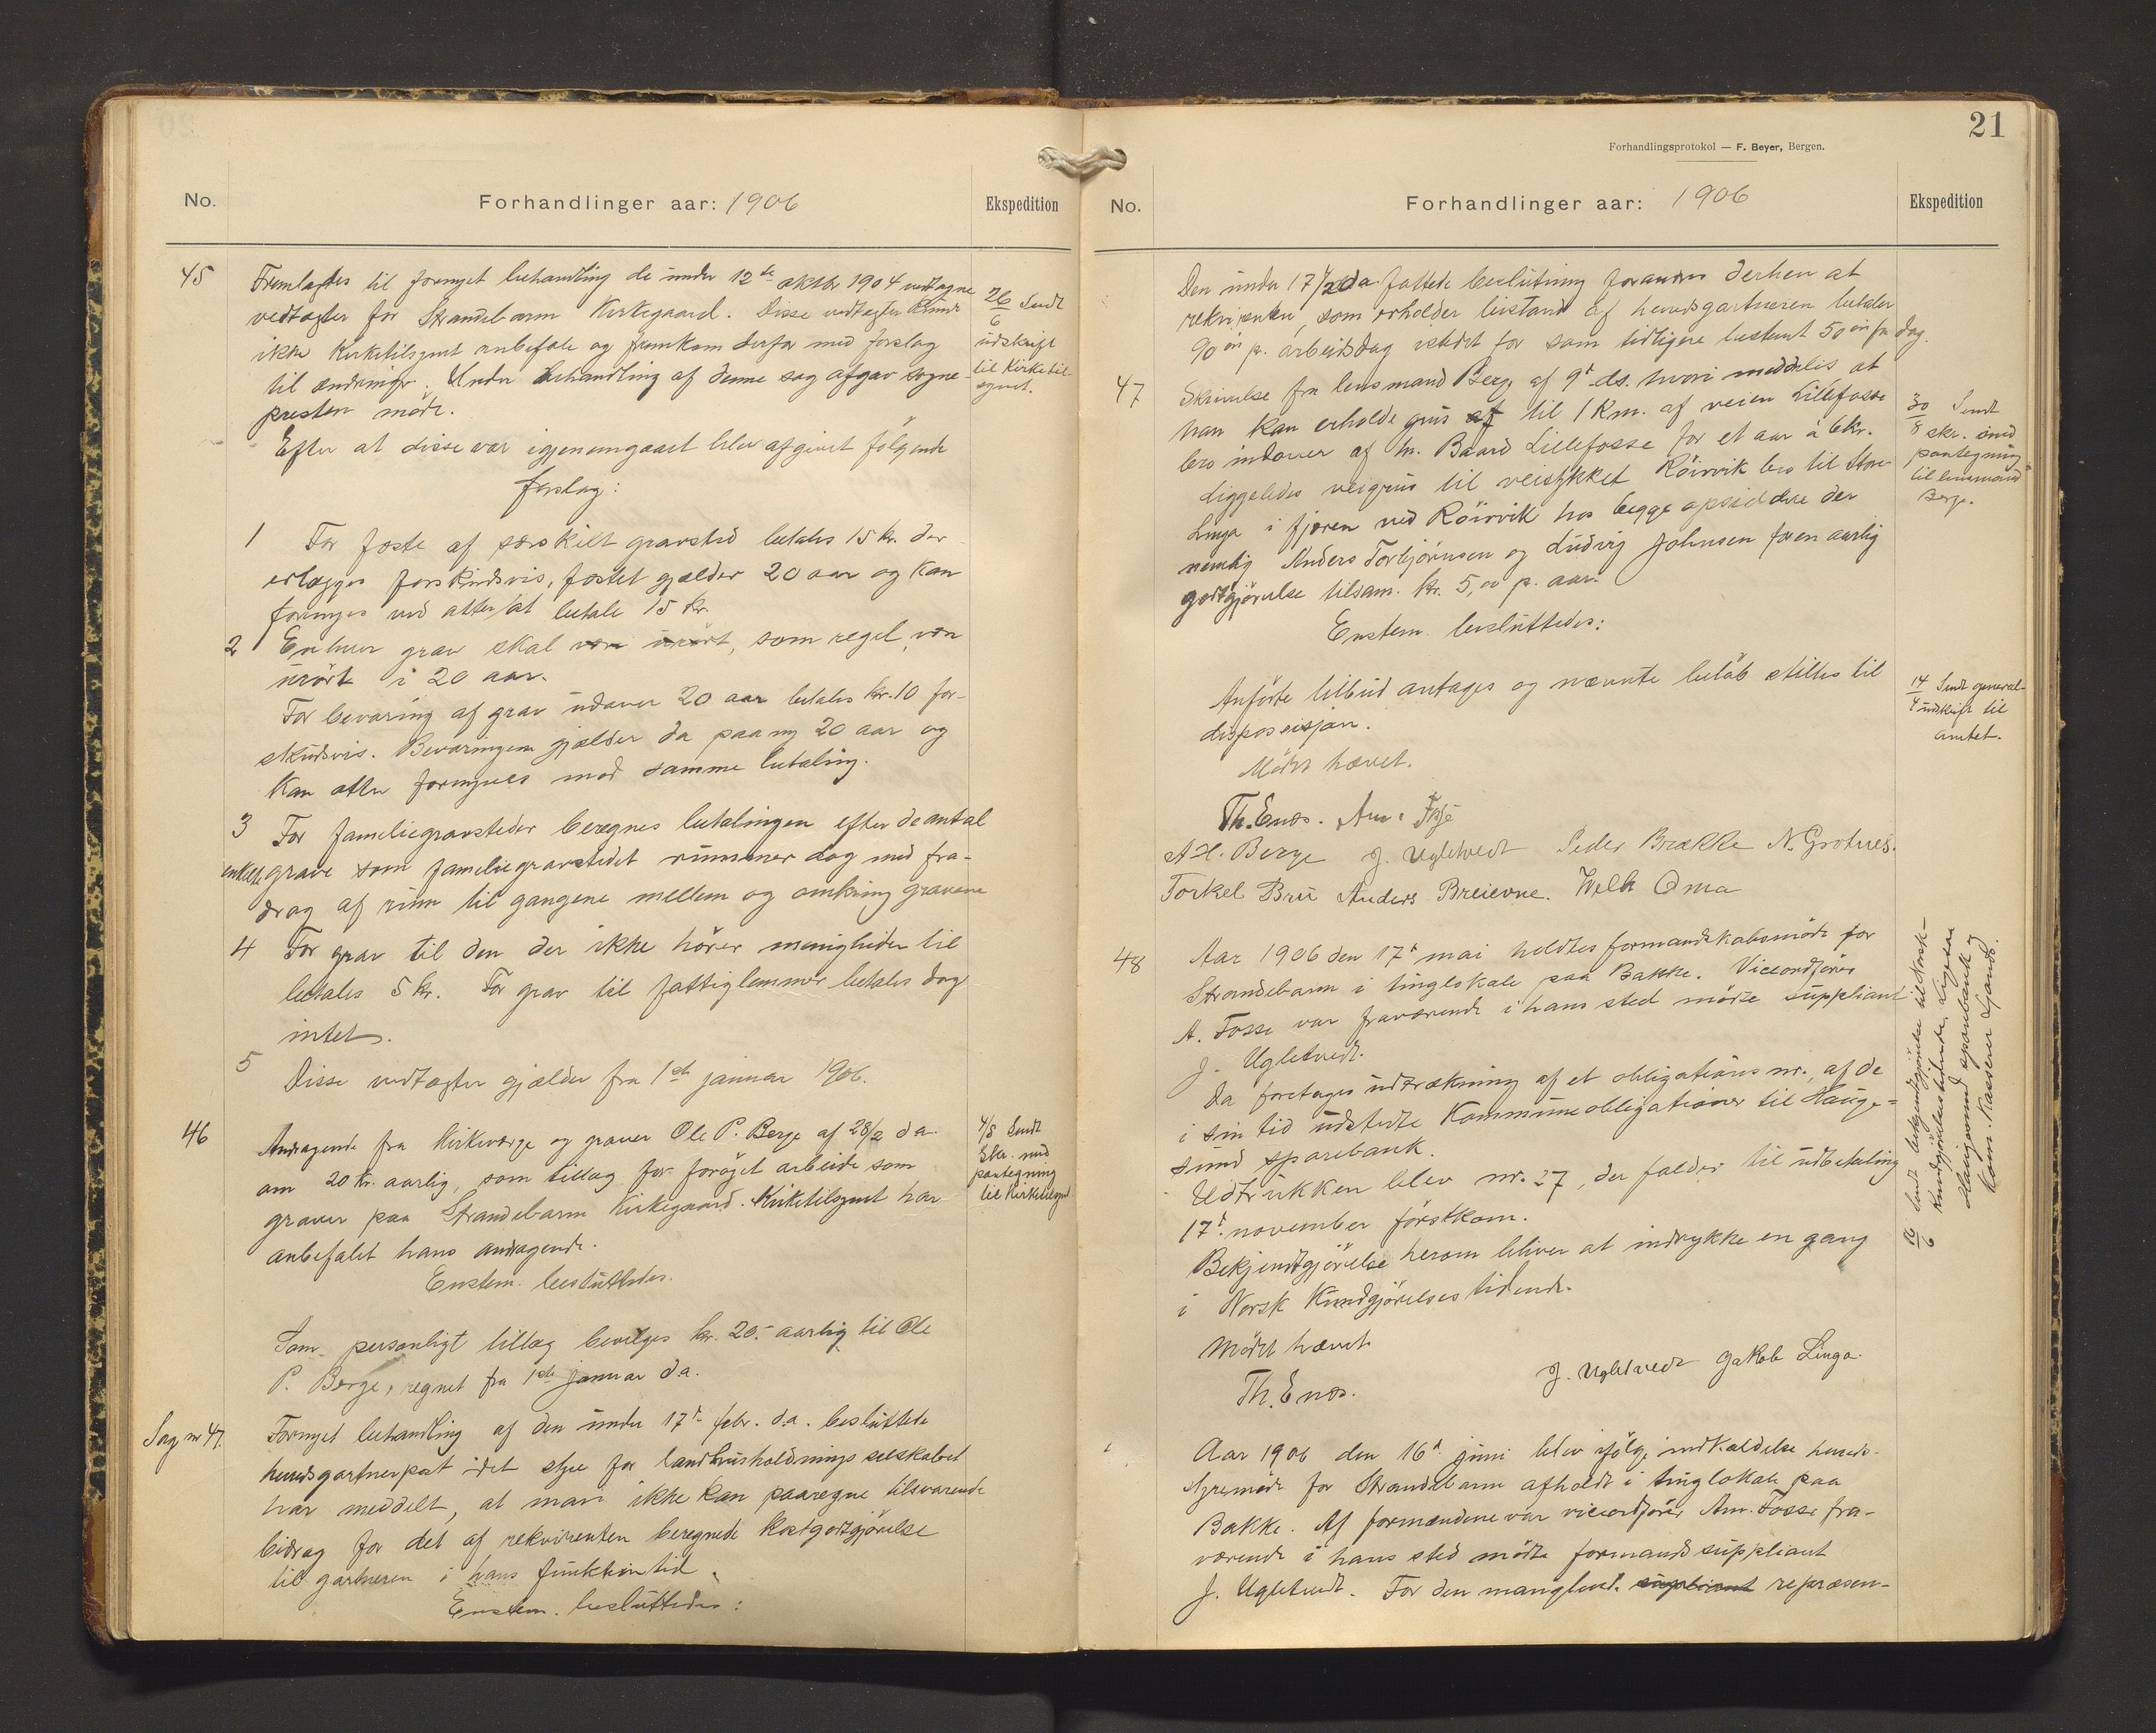 No.
Forhandlinger aar: 1906
Ekspedition
45
Fremlagdes til fornyet behandling de under 12te oktbr 1904 vedtagne
vedtægter for Strandebarm Kirkegaard. Disse vedtægter kunde
ikke Kirketilsynet anbefale og fremkom derfor med forslag
til ændringer. Under behandling af denne sag afgav sogne-
presten møde.
26/6 Sendt
udskrift
til Kirketil-
synet.
Efter at disse var igjennemgaaet blev afgivet følgende
forslag:
1 For fæste af særskilt gravsted betales 15 kr. der
erlægges forskudsvis, fæstet gjælder 20 aar og kan
fornyes ved atter at betale 15 kr.
2 Enhver grav skal være urørt, som regel, være
urørt i 20 aar.
For bevaring af grav udover 20 aar betales kr. 10 for-
skudsvis. Bevaringen gjælder da paa ny 20 aar og
kan atter fornyes mod samme betaling.
3 For familiegravsteder beregnes betalingen efter de antal
enkelte grave som familiegravstedet rummer dog med fra-
drag af rum til gangene mellem og omkring gravene
4 For grav til den der ikke hører menigheden til
betales 5 kr. For grav til fattiglemmer betales dog
intet.
5 Disse vedtægter gjælder fra 1ste januar 1906.
46
Andragende fra Kirkeværge og graver Ole P. Berge af 28/2 d.a.
om 20 kr. aarlig, som tillæg for forøget arbeide som
graver paa Strandebarm Kirkegaard. Kirketilsynet har
anbefalet hans andragende.
4/8 Sendt
Skr. med
paategning
til Kirketilsynet
Enstem. besluttedes.
Som personligt tillæg bevilges kr. 20.- aarlig til Ole
P. Berge, regnet fra 1ste januar d.a.
Sag nr 47.
Fornyet behandling af den under 17d febr. d.a. besluttede
herredsgartnerpost idet styre for landhusholdningsselskabet
har meddelt, at man ikke kan paaregne tilsvarende
bidrag for det af rekvirenten beregnede kostgodtgjørelse
til gartneren i hans funktiontid.
Enstem. besluttedes:
21
Forhandlingsprotokol — F. Beyer, Bergen.
No.
Forhandlinger aar: 1906
Ekspedition
Den under 17/2 d.a. fattede beslutning forandres derhen at
rekvirenten, som erholder bistand af herredsgartneren betaler
90 øre pr. arbeidsdag istedet for som tidligere bestemt 50 øre pr dag.
47
Skrivelse fra lensmand Berge af 9d ds. hvori meddeles at
han kan erholde grus af til 1 Km. af veien Lillefosse
bro indover af hr. Baard Lillefosse for et aar á 6 kr.
Liggeledes veigrus til veistykket Röirvik bro til Store
Linga i fjæren ved Röirvik hos begge opsiddere der
nemlig Anders Torbjørnsen og Ludvig Johnsen for en aarlig
godtgjørelse tilsam. kr. 5,00 p. aar.
30/8 Sendt
skr. med
paategning
til lensmand
Berge.
Enstem. besluttedes:
Anførte tilbud antages og nævnte beløb stilles til
disposisjon.
14/4 Sendt general-
udskrift til
Amtet.
Mødet hævet.
Th. Enes. Am. Fosse
A H. Berge J. Ugletvedt Peder Brække N. Grotnes.
Torkel Bru Anders Breievne. Wilh Oma
48
Aar 1906 den 17d mai holdtes formandskabsmøde for
Strandebarm i tinglokale paa Bakke. Viceordfører
A. Fosse var fraværende i hans sted mødte suppliant
J. Ugletvedt.
Da foretoges udtrækning af et obligations nr. af de
i sin tid udstedte Kommuneobligationer til Hauge-
sund sparebank.
Udtrukken blev nr. 27, der falder til udbetaling
17d november førstkom.
Bekjendtgjørelse herom bliver at indrykke en gang
i Norsk Kundgjørelsestidende.
16/6 Sendt bekjendtgjørelse til Norsk-
Kundgjørelsestidende. Ligesaa
Haugesund sparebank og
kom. Kasserer
Mødet hævet
Th. Enes. J. Ugletvedt Jakob Linga.
Aar 1906 den 16d juni blev ifølge indkaldelse herreds-
styremøde for Strandebarm afholdt i tinglokale paa
Bakke. Af formændene var viceordfører Am. Fosse fra-
værende i hans sted mødte formandssuppliant
J. Ugletvedt. For den manglende suppliant repræsen-